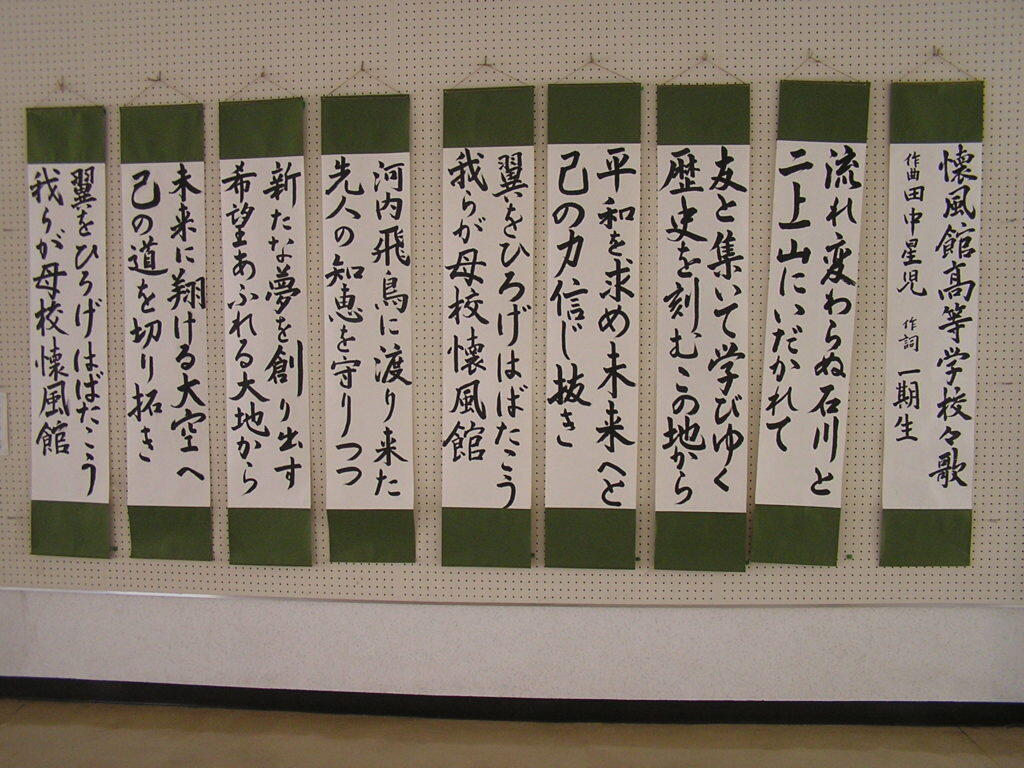 懐風館高等学校々歌
作曲 田中星児 作詞 一期生
流れ変わらぬ石川と
二上山にいだかれて
友と集いて学びゆく
歴史を刻むこの地から
平和を求め未来へと
己の力信じ抜き
翼をひろげはばたこう
我らが母校懐風館
河内飛鳥に渡り来た
先人の知恵を守りつつ
新たな夢を創り出す
希望あふれる大地から
未来に翔ける大空へ
己の道を切り拓き
翼をひろげはばたこう
我らが母校懐風館